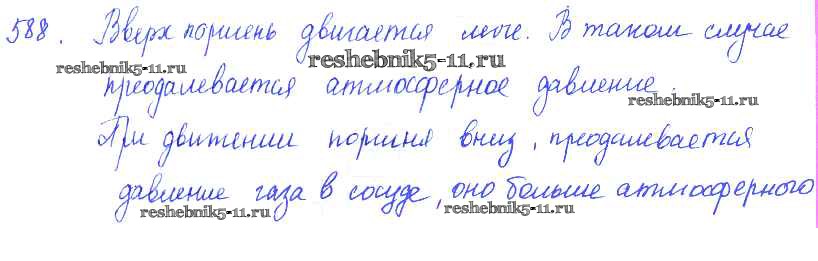 588. Вверх поршень двигается легче. В таком случае
reshebnik5-11.ru
reshebnik5-11.ru
преодалевается атмосферное давление.
reshebnik5-11.ru
При движении поршня вниз, преодалевается
давление газа в сосуде, оно больше атмосферного
reshebnik5-11.ru
reshebnik5-11.ru